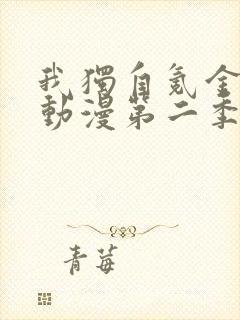 我獨自氪金
動漫第二季
青莓